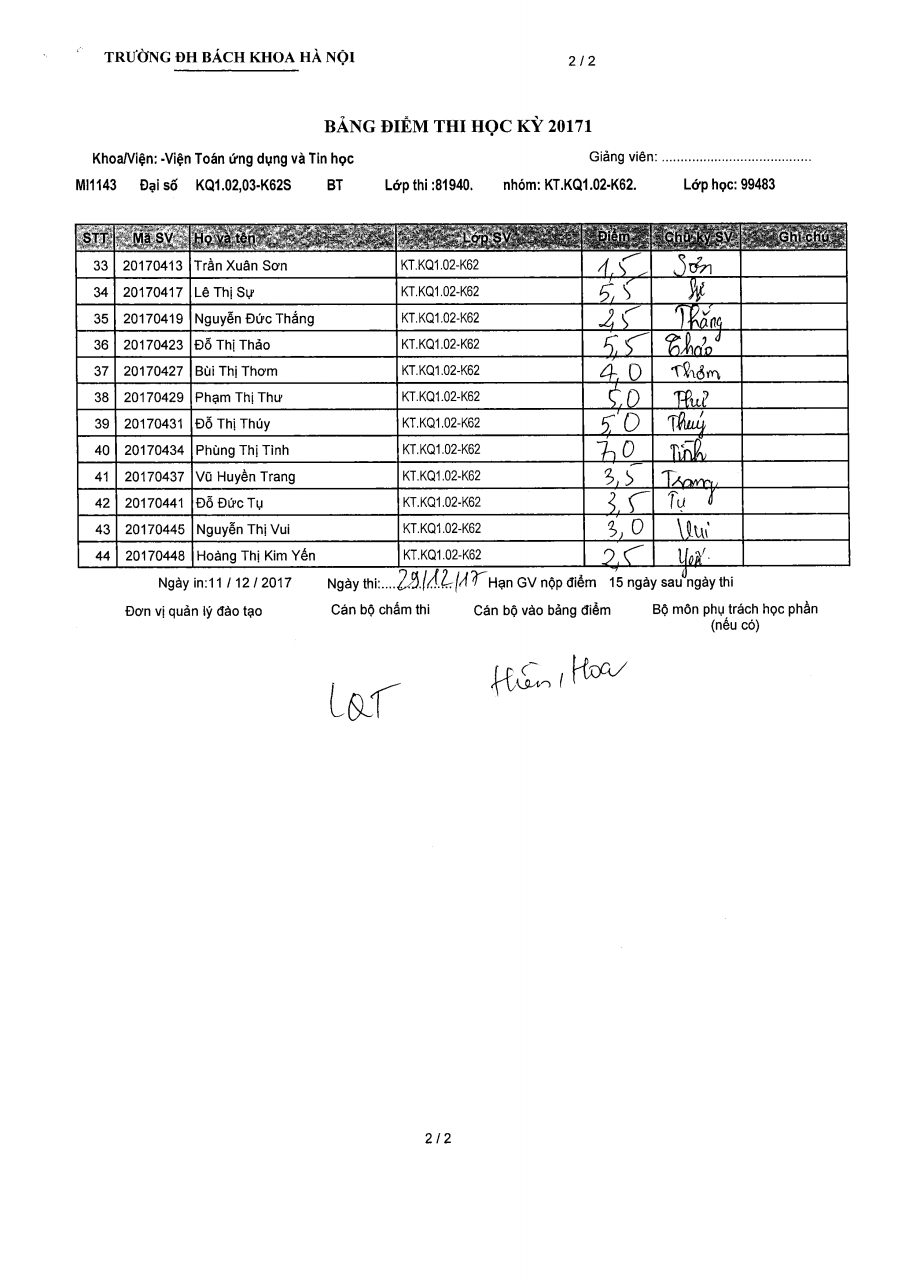 TRƯỜNG ĐH BÁCH KHOA HÀ NỘI 2 / 2
BẢNG ĐIỂM THI HỌC KỲ 20171
Khoa/Viện: -Viện Toán ứng dụng và Tin học Giảng viên: .......................................
MI1143 Đại số KQ1.02,03-K62S BT Lớp thi :81940. nhóm: KT.KQ1.02-K62. Lớp học: 99483
STT Mã SV Họ và tên Lớp SV Điểm Chữ ký SV Ghi chú
33 20170413 Trần Xuân Sơn KT.KQ1.02-K62 1,5 Sơn
34 20170417 Lê Thị Sự KT.KQ1.02-K62 5,5 Sự
35 20170419 Nguyễn Đức Thắng KT.KQ1.02-K62 2,5 Thắng
36 20170423 Đỗ Thị Thảo KT.KQ1.02-K62 5,5 Thảo
37 20170427 Bùi Thị Thơm KT.KQ1.02-K62 4,0 Thơm
38 20170429 Phạm Thị Thư KT.KQ1.02-K62 5,0 Thư
39 20170431 Đỗ Thị Thúy KT.KQ1.02-K62 5,0 Thuý
40 20170434 Phùng Thị Tình KT.KQ1.02-K62 7,0 Tình
41 20170437 Vũ Huyền Trang KT.KQ1.02-K62 3,5 Trang
42 20170441 Đỗ Đức Tụ KT.KQ1.02-K62 3,5 Tụ
43 20170445 Nguyễn Thị Vui KT.KQ1.02-K62 3,0 Vui
44 20170448 Hoàng Thị Kim Yến KT.KQ1.02-K62 2,5 Yến
Ngày in:11 / 12 / 2017 Ngày thi:....29/12/17 Hạn GV nộp điểm 15 ngày sau ngày thi
Đơn vị quản lý đào tạo Cán bộ chấm thi Cán bộ vào bảng điểm Bộ môn phụ trách học phần
(nếu có)
LQT Hiền, Hoa
2 / 2